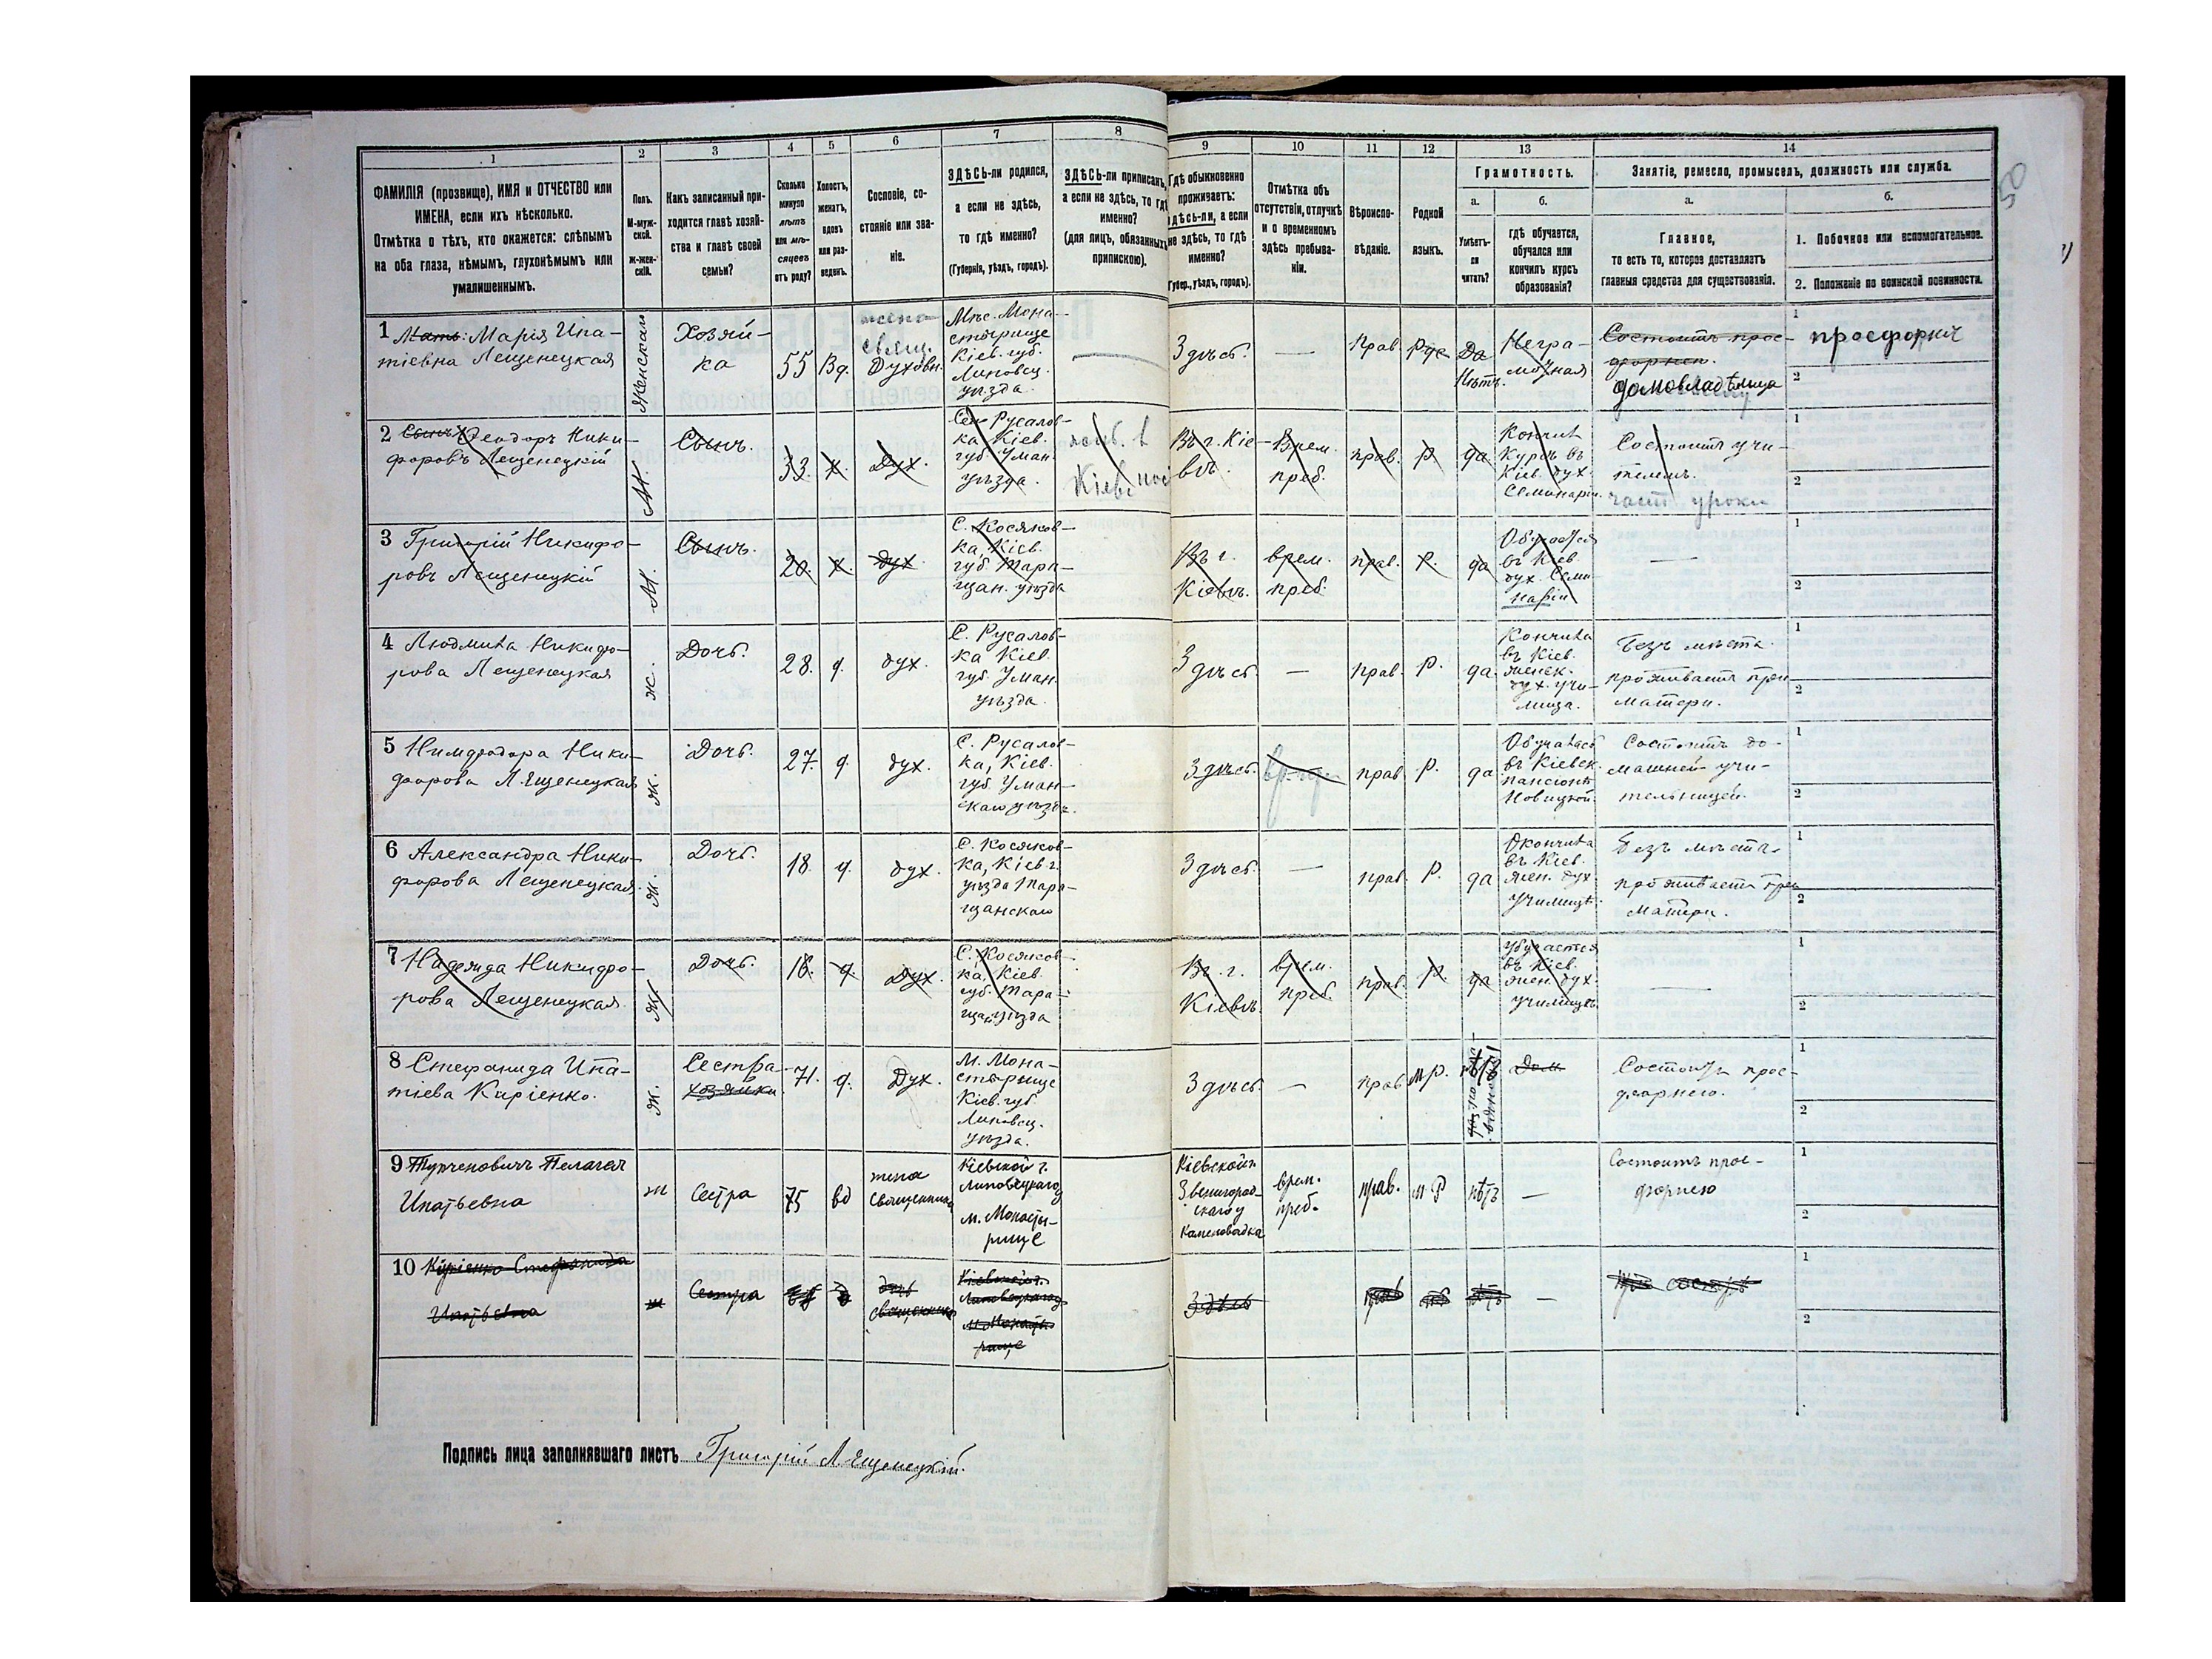 50
1
2
3
4
5
6
7
8
9
10
11
12
13
14
ФАМИЛІЯ (прозвище), ИМЯ и ОТЧЕСТВО или
ИМЕНА, если ихъ нѣсколько.
Отмѣтка о тѣхъ, кто окажется: слѣпымъ
на оба глаза, нѣмымъ, глухонѣмымъ или
умалишеннымъ.
Полъ.
М-муж-
ской.
ж-жен-
скій.
Какъ записанный при-
ходится главѣ хозяй-
ства и главѣ своей
семьи?
Сколько
минуло
лѣтъ
или мѣ-
сяцевъ
отъ роду?
Холостъ,
женатъ,
вдовъ
или раз-
веденъ.
Сословіе, со-
стояніе или зва-
ніе.
ЗДѢСЬ-ли родился,
а если не здѣсь,
то гдѣ именно?
(Губернія, уѣздъ, городъ).
ЗДѢСЬ-ли приписанъ,
а если не здѣсь, то гдѣ
именно?
(для лицъ, обязанныхъ
припискою).
Гдѣ обыкновенно
проживаетъ:
здѣсь-ли, а если
не здѣсь, то гдѣ
именно?
(Губер., уѣздъ, городъ).
Отмѣтка объ
отсутствіи, отлучкѣ
и о временномъ
здѣсь пребыва-
ніи.
Вѣроиспо-
вѣданіе.
Родной
языкъ.
Грамотность.
а.
б.
Умѣетъ-
ли
читать?
гдѣ обучается,
обучался или
кончилъ курсъ
образованія?
Занятіе, ремесло, промыселъ, должность или служба.
а.
б.
Главное,
то есть то, которое доставляетъ
главныя средства для существованія.
1. Побочное или вспомогательное.
2. Положеніе по воинской повинности.
1 Мать: Марія Ипа-
тіевна Лещенецкая
Женскаго
Хозяй-
ка
55
Вд.
жена
свящ.
Духовн.
Мѣс. Мона-
стырище
Кіев. губ.
Липовец.
уѣзда.
Здѣсь.
—
Прав.
Рус
Да
Нѣтъ.
Негра-
мотная
Состоитъ прос-
форней.
домовладѣлица
1
просфорня
2
2 Сынъ Ѳеодоръ Ники-
форовъ Лещенецкій
М.
Сынъ.
33.
х.
Дух.
Сел. Русалов-
ка Кіев.
губ. Уман.
уѣзда.
Въ г. Кіе-
вѣ.
Врем.
преб.
прав.
р.
да
Кончилъ
курсъ въ
Кіев. дух.
Семинаріи.
Состоитъ учи-
телемъ.
част уроки
1
2
3 Григорій Никифо-
ровъ Лещенецкій
М.
Сынъ.
20.
х.
дух.
С. Косяков-
ка, Кіев.
губ. Тара-
щан. уѣзда
Въ г.
Кіевѣ.
врем.
преб.
прав.
Р.
да
Обучается
въ Кіев.
дух. Семи-
наріи
—
1
2
4 Людмила Никифо-
рова Лещенецкая
ж.
Дочь.
28.
д.
дух.
С. Русалов-
ка Кіев.
губ. Уман.
уѣзда.
Здѣсь.
—
прав.
Р.
да.
Кончила
въ Кіев.
женск.
дух. учи-
лища.
Безъ мѣста.
проживаетъ при
матери.
1
2
5 Нимфодора Ники-
форова Лещенецкая
ж.
Дочь.
27.
д.
дух.
С. Русалов-
ка, Кіев.
губ. Уман-
скаго уѣзда.
Здѣсь.
прав.
Р.
да
Обучалась
въ Кіевск.
пансіонѣ
Новицкой.
Состоитъ до-
машней учи-
тельницей.
1
2
6 Александра Ники-
форова Лещенецкая.
ж.
Дочь.
18.
д.
дух.
С. Косяков-
ка, Кіев г.
уѣзда Тара-
щанскаго
Здѣсь.
—
прав.
Р.
да
Окончила
въ Кіев.
жен. дух.
училищѣ.
Безъ мѣста
проживаетъ при
матери.
1
2
7 Надежда Никифо-
рова Лещенецкая.
ж.
Дочь.
16.
д.
Дух.
С. Косяков-
ка, Кіев.
губ. Тара-
щан. уѣзда
Въ г.
Кіевѣ.
врем.
преб.
прав.
Р.
да
Обучается
въ Кіев.
жен. дух.
училищѣ.
—
1
2
8 Стефанида Ипа-
тіева Киріенко.
ж.
Сестра
хозяйки
71.
д.
Дух.
М. Мона-
стырище
Кіев. губ.
Липовец.
уѣзда.
Здѣсь.
—
прав.
м.р.
Дом.
Состоитъ прос-
форнею.
1
2
9 Тупченовичъ Пелагея
Ипатьевна
ж
Сестра
75
вд
жена
священника
Кіевской г.
Липовецкаго у
м. Монасты-
рище
Кіевской г.
Звенигород-
скаго у
врем.
преб.
прав.
м Р
нѣтъ
—
Состоитъ прос-
форнею
1
2
10 Киріенко Стефанида
Ипатьевна
ж
Сестра
д
дочь
священника
Кіевской г.
Липовецкаго у
м. Монасты-
рище
Здѣсь
прав
нѣтъ
—
При сестрѣ
1
2
Подпись лица заполнявшаго листъ Григорій Лещенецкій.